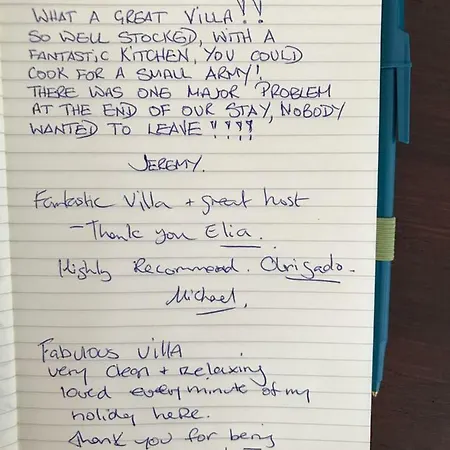 WHAT A GREAT VILLA!!
SO WELL STOCKED, WITH A
FANTASTIC KITCHEN, YOU COULD
COOK FOR A SMALL ARMY!
THERE WAS ONE MAJOR PROBLEM
AT THE END OF OUR STAY, NOBODY
WANTED TO LEAVE !!!!
JEREMY.
Fantastic Villa + great host
- Thank you Elia.
Highly Recommend. Obrigado.
Michael.
Fabulous villa
very clean + relaxing
loved every minute of my
holiday here.
thank you for being